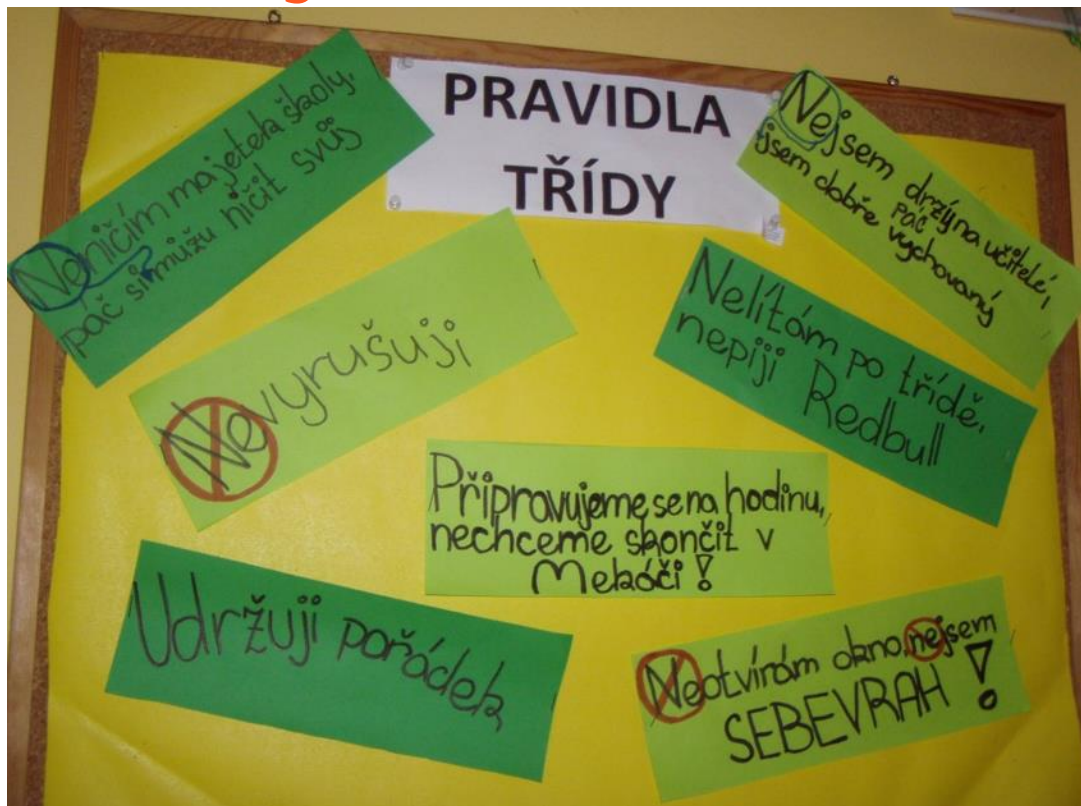 PRAVIDLA
TŘÍDY
Neničím majetek školy,
páč si můžu ničit svůj
Nejsem drzý na učitele,
páč
jsem dobře vychovaný
Nevyrušuji
Nelítám po třídě,
nepiji
Redbull
Připravujeme se na hodinu,
nechceme skončit v
Mekáči!
Udržuji pořádek
Neotvírám okno, nejsem
SEBEVRAH!